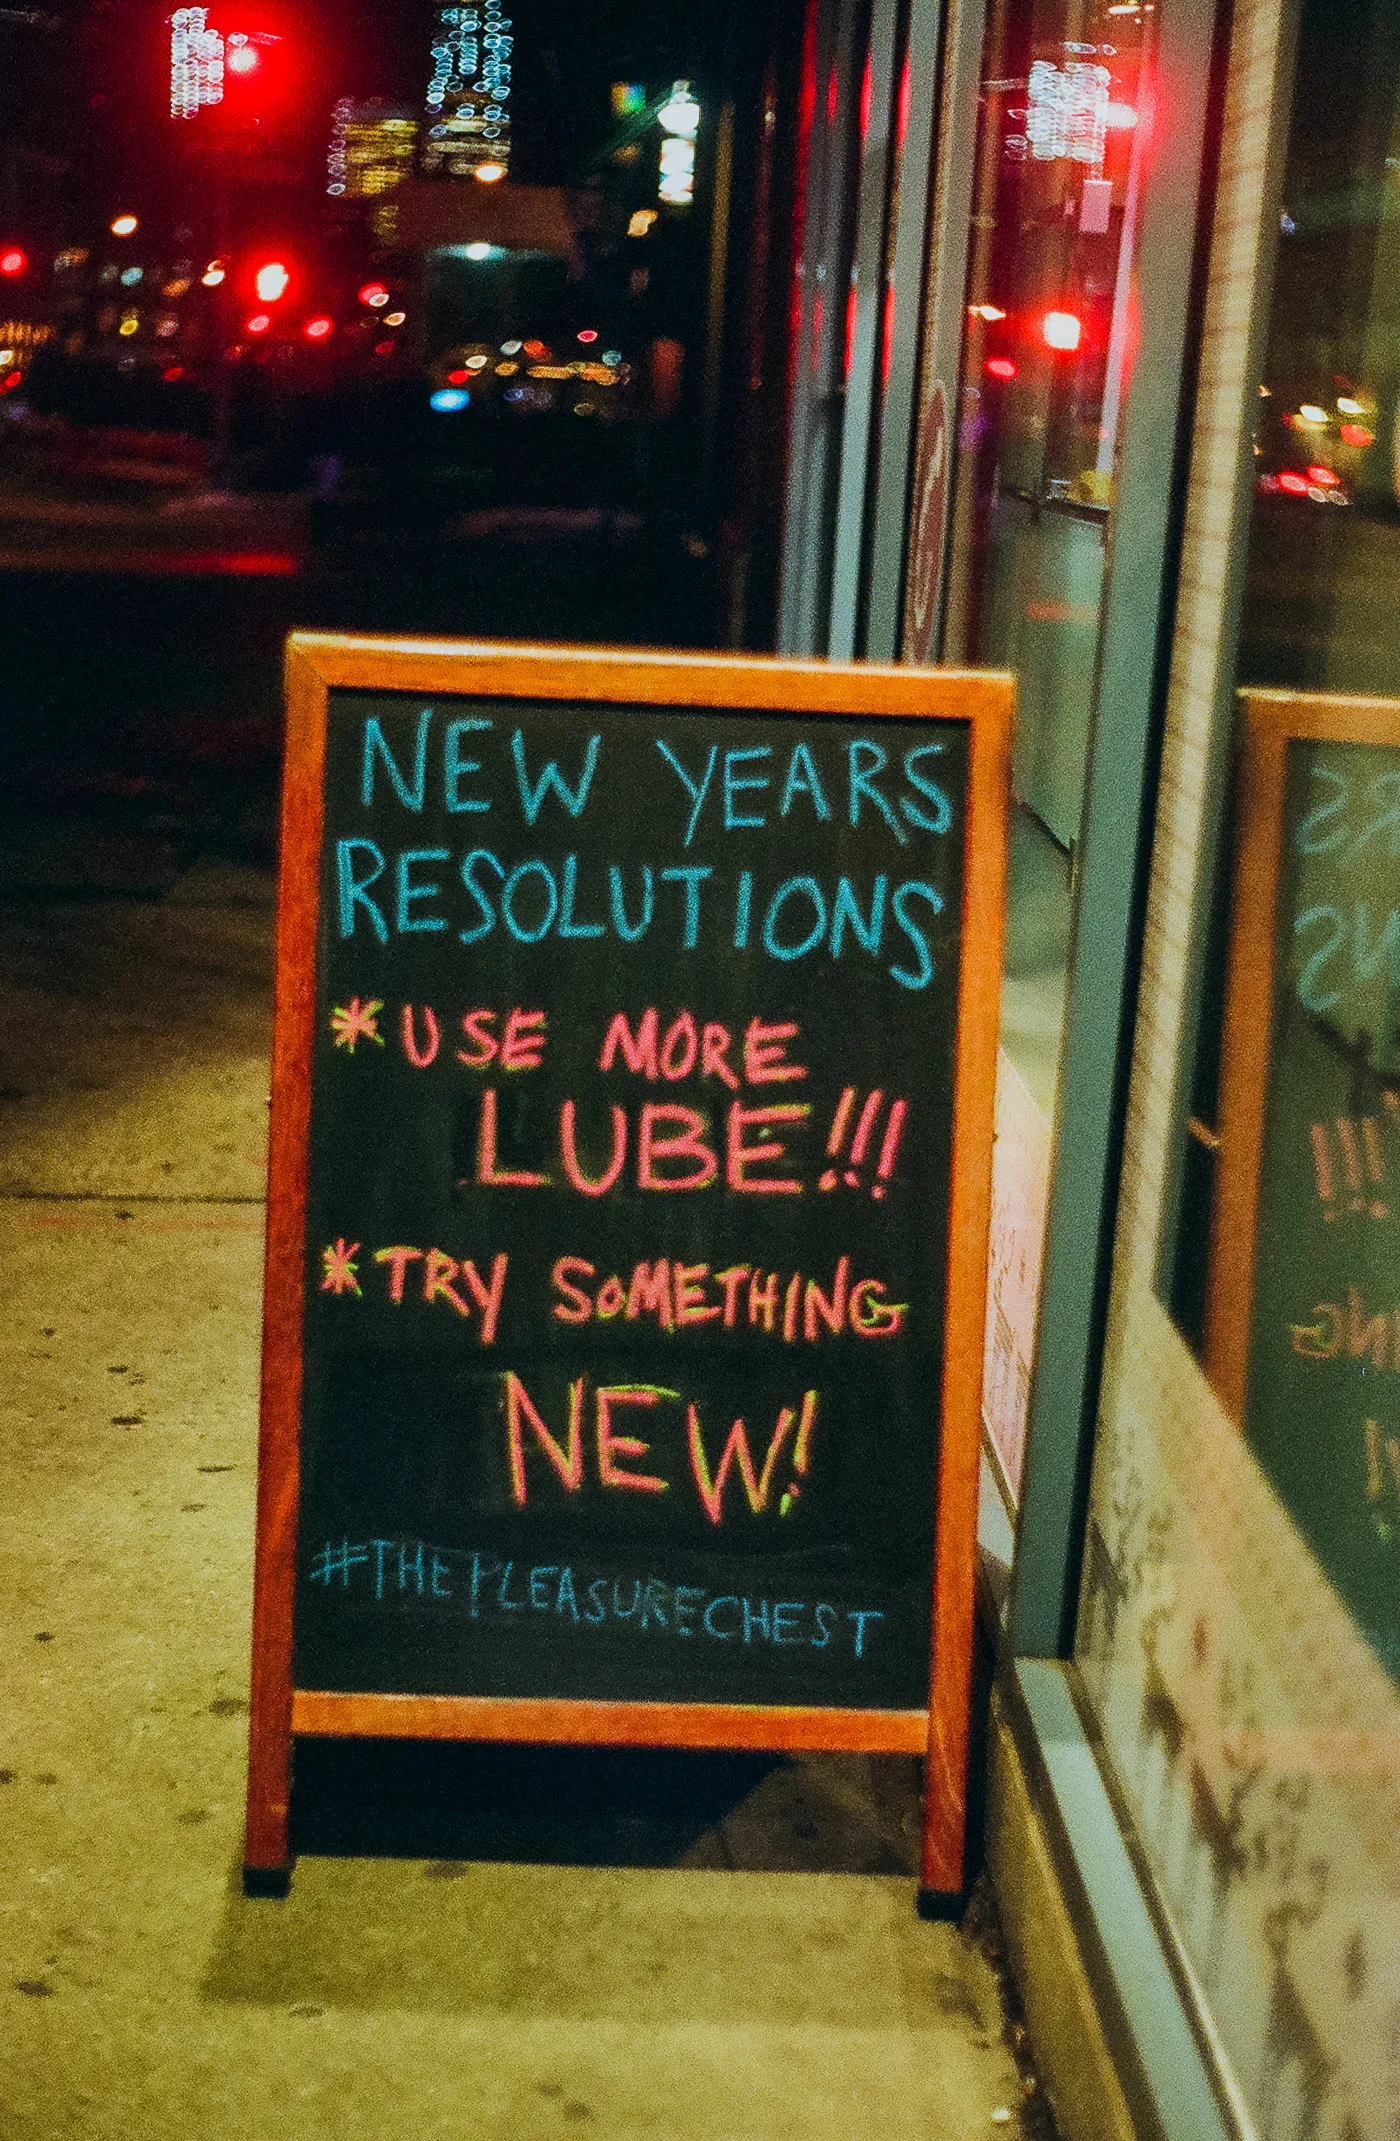 NEW YEARS
RESOLUTIONS
* USE MORE
LUBE!!!
* TRY SOMETHING
NEW!
#THEPLEASURECHEST